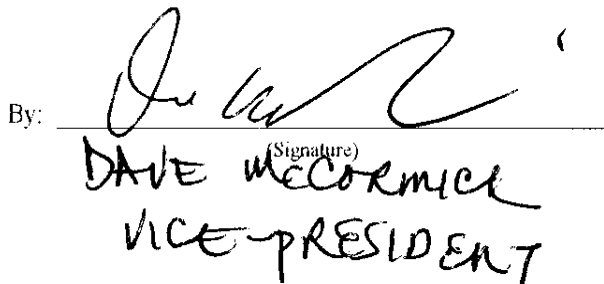 By:
(Signature)
DAVE McCORMICK
VICE-PRESIDENT